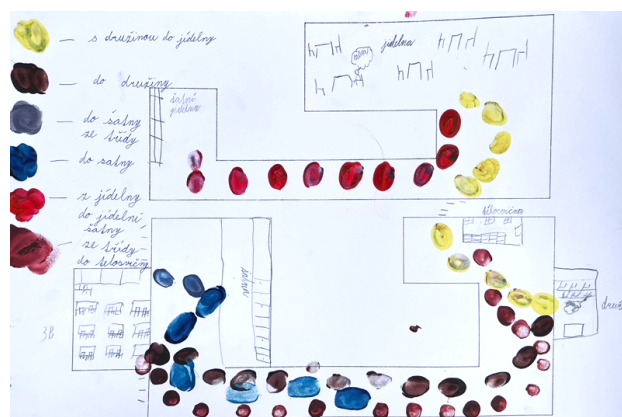 s družinou do jídelny
do družiny
do šatny
ze třídy
do šatny
z jídelny
do jídelní
šatny
ze třídy
do tělocvičny
šatna
jídelna
jídelna
šatna
tělocvična
3B
druž